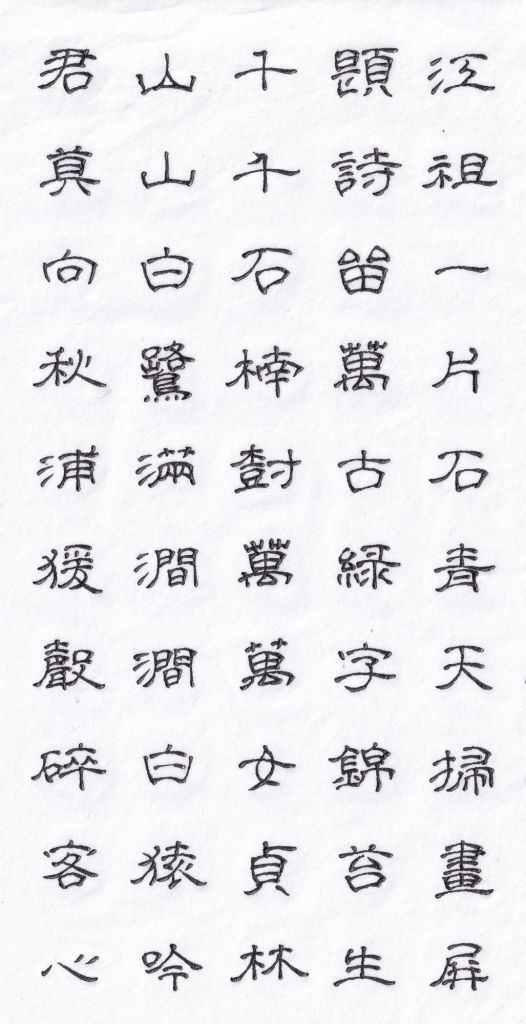 江祖一片石青天掃畫屏
題詩留萬古緑字錦苔生
千千石楠樹萬萬女貞林
山山白鷺滿澗澗白猿吟
君莫向秋浦猨聲碎客心